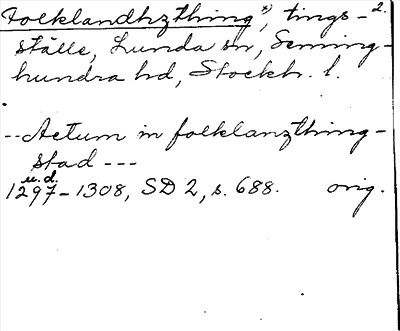 Folklandhzthing x), tings- 2.
ställe, Lunda sn, Seming-
hundra hd, Stockh. l.
-- Actum in folklanzthing-
stad ---
u.d.
1297-1308, SD 2, s. 688. orig.